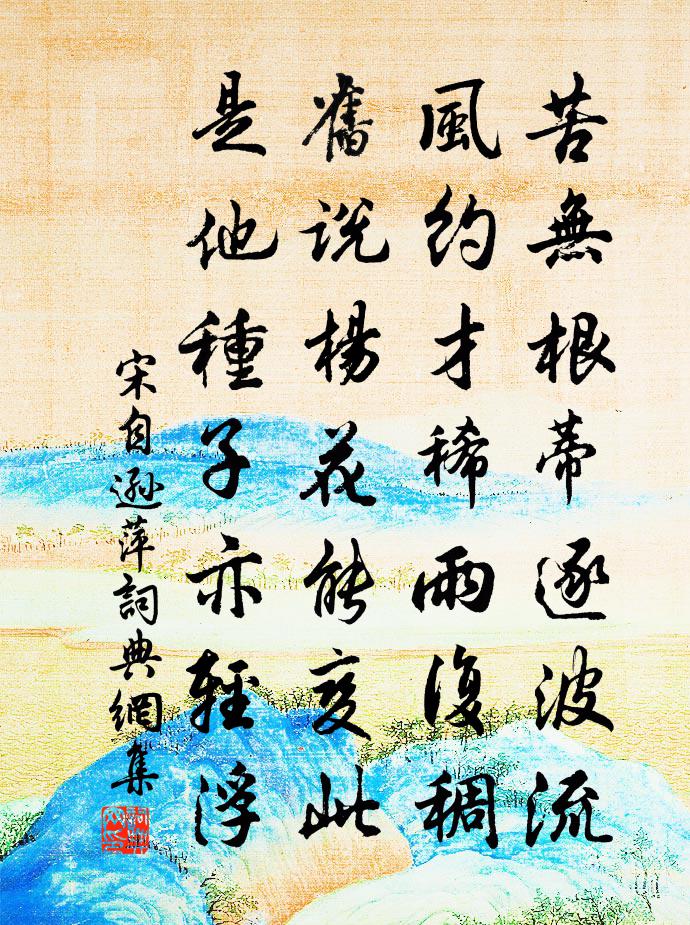 苦無根蒂逐波流
風約才稀雨復稠
舊説楊花能變此
是他種子亦輕浮
宋自遜萍詞典網集